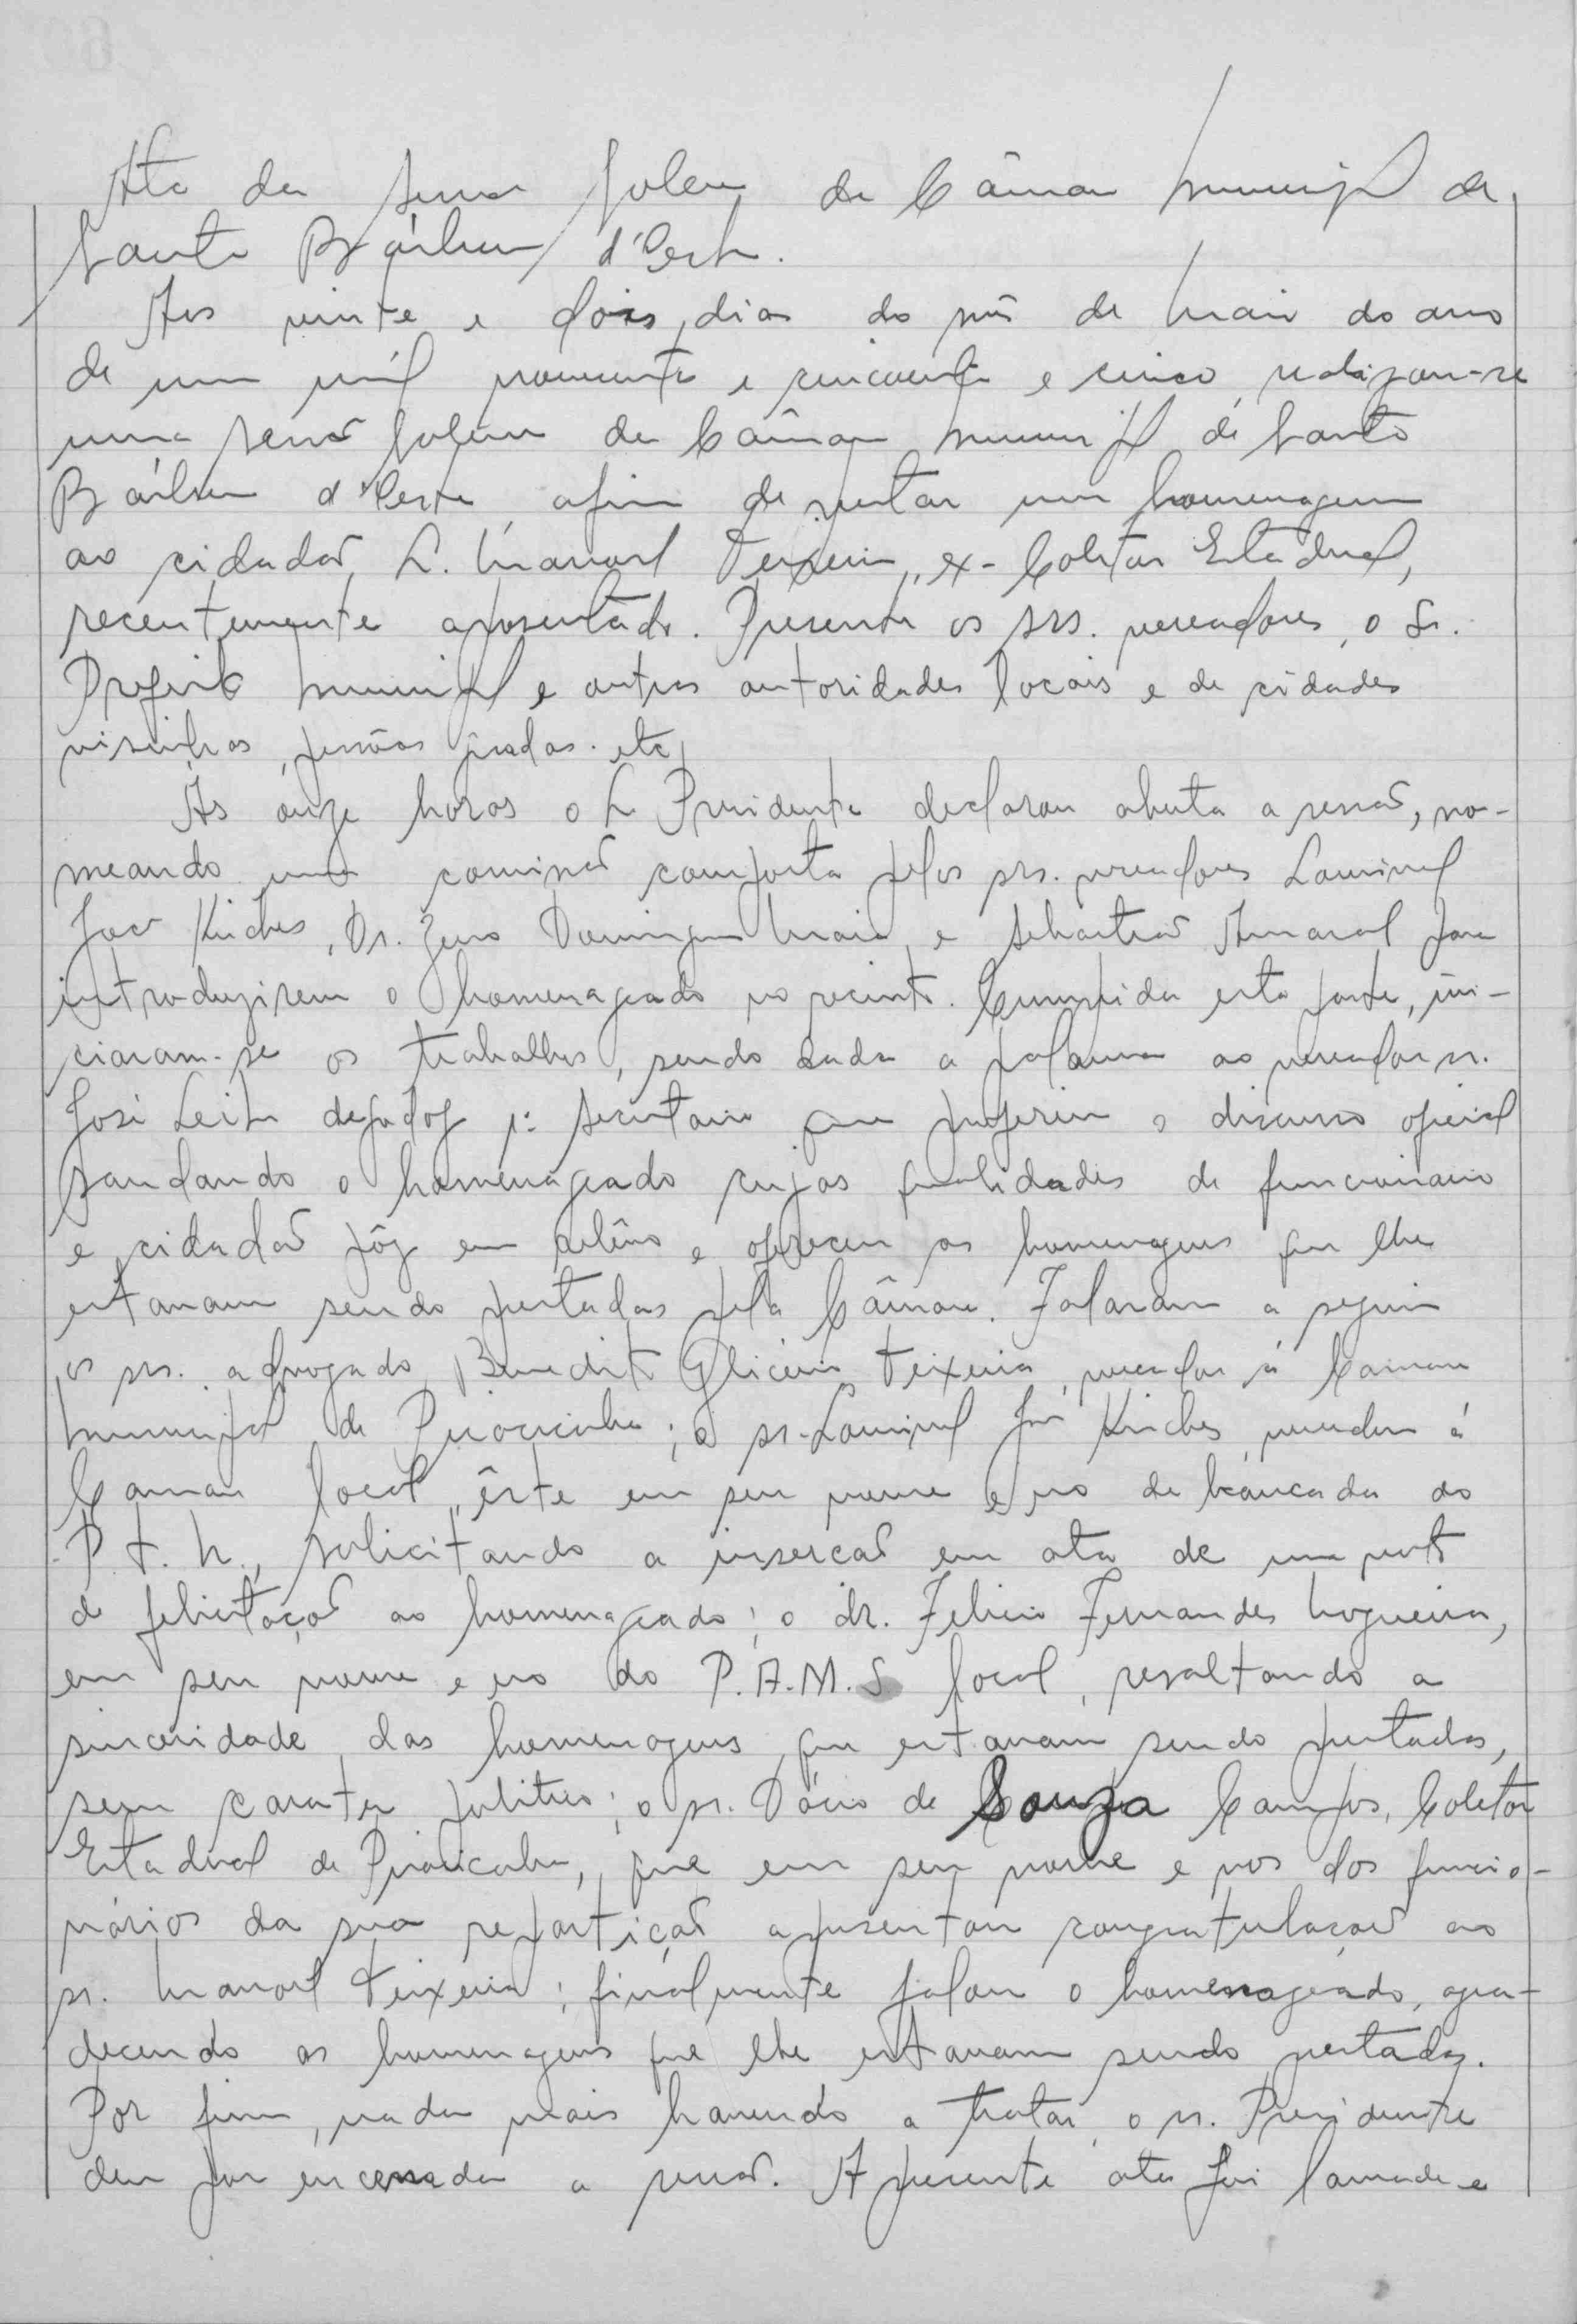 Ata da sessão solene da Câmara Municipal de
Santa Bárbara d'Oeste.
Aos vinte e dois dias do mês de Maio do ano
de um mil novecentos e cincoenta e cinco, realizou-se
uma sessão solene da Câmara Municipal de Santa
Bárbara d'Oeste, afim de prestar uma homenagem
ao cidadão, S. Manoel Teixeira, ex-Coletor Estadual,
recentemente aposentado. Presente os srs. vereadores, o Sr.
Prefeito Municipal e outras autoridades locais e de cidades
visinhas, pessôas gradas. etc
Às onze horas o S. Presidente declarou aberta a sessão, no-
meando uma comissão composta pelos srs. vereadores Lourival
José Kirches, Dr. Zeno Domingues Maia, e Sebastião Amaral para
introduzirem o homenageado no recinto. Cumprida esta parte, ini-
ciaram-se os trabalhos, sendo dada a palavra ao vereador sr.
José Leite 1º secretario que proferiu o discurso oficial
saudando o homenageado cujas qualidades de funcionario
e cidadão pôz em relêvo e ofereceu as homenagens que lhe
estavam sendo prestadas pela Câmara. Falaram a seguir
os srs. advogado Benedito Glicério Teixeira, vereador á Camara
Municipal de Piracicaba; o sr. Lourival José Kirches, vereador á
Camara local, êste em seu nome e no da bancada do
P.T.N., solicitando a inserção em ata de um voto
de felicitação ao homenageado; o dr. Felicio Fernandes Nogueira,
em seu nome e no do P.A.M.S local, resaltando a
sinceridade das homenagens que estavam sendo prestadas,
sem carater politico; o sr. Dácio de Souza Campos, Coletor
Estadual de Piracicaba, que em seu nome e nos dos funcio-
nários da sua repartição apresentou congratulações ao
sr. Manoel Teixeira; finalmente falou o homenageado, agra-
decendo as homenagens que lhe estavam sendo prestadas.
Por fim, nada mais havendo a tratar, o sr. Presidente
deu por encerrada a sessão. A presente ata foi lavrada e